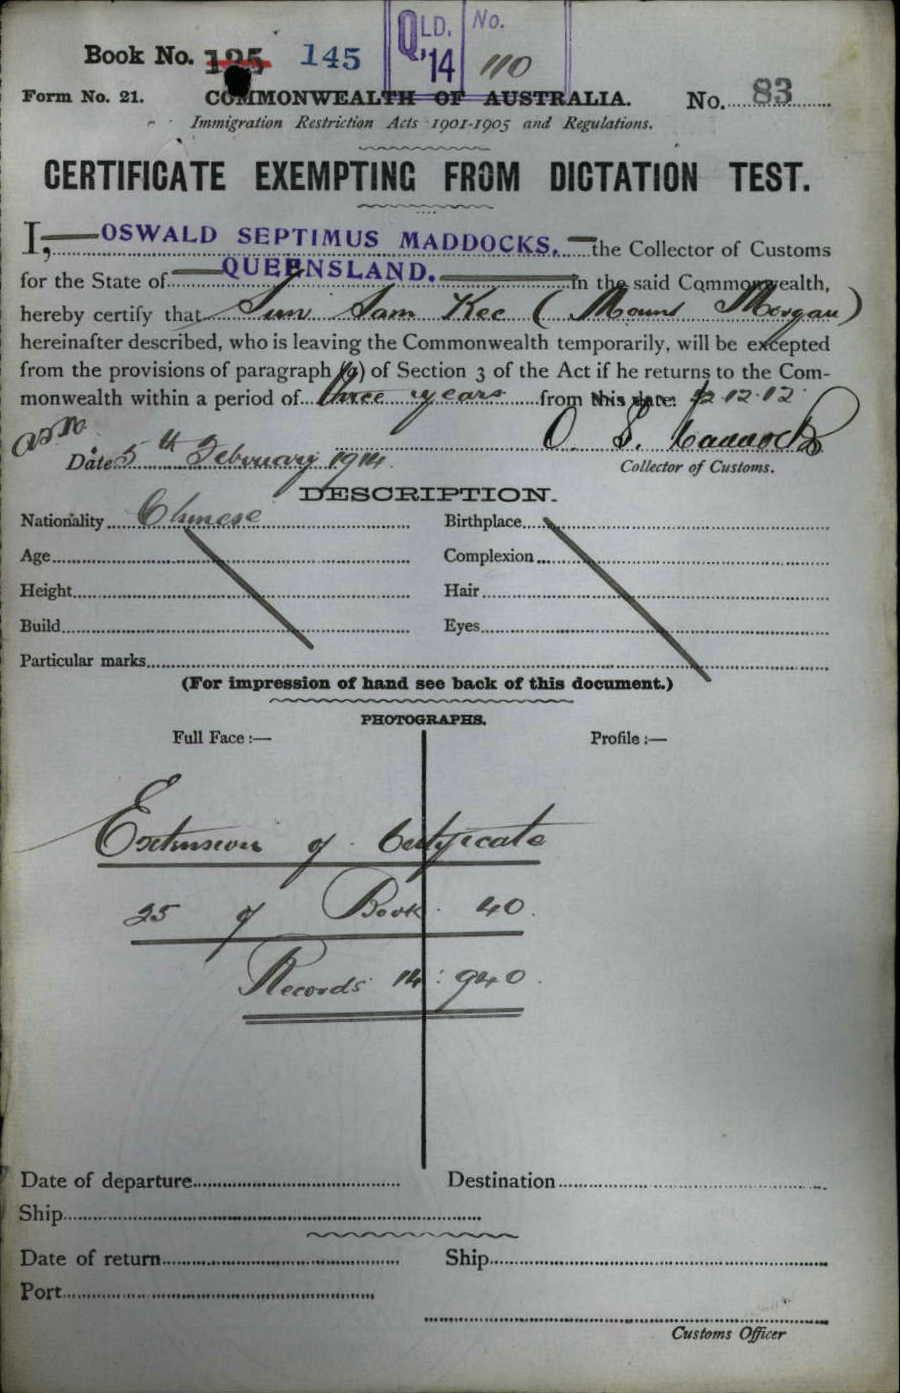 QLD. No.
'14 110
Book No. 125 145
Form No. 21. COMMONWEALTH OF AUSTRALIA. No. 83
Immigration Restriction Acts 1901-1905 and Regulations.
CERTIFICATE EXEMPTING FROM DICTATION TEST.
I, OSWALD SEPTIMUS MADDOCKS, the Collector of Customs
for the State of QUEENSLAND. in the said Commonwealth,
hereby certify that Sun Sam Kee (Mount Morgan)
hereinafter described, who is leaving the Commonwealth temporarily, will be excepted
from the provisions of paragraph (a) of Section 3 of the Act if he returns to the Com-
monwealth within a period of three years from this date: 12.12.12
O. S. Maddocks
Date 5th February 1914.
Collector of Customs.
DESCRIPTION.
Nationality Chinese Birthplace
Age Complexion
Height Hair
Build Eyes
Particular marks
(For impression of hand see back of this document.)
PHOTOGRAPHS.
Full Face :— Profile :—
Extension of Certificate
25 of Book 40.
Records 14: 940.
Date of departure Destination
Ship
Date of return Ship
Port
Customs Officer